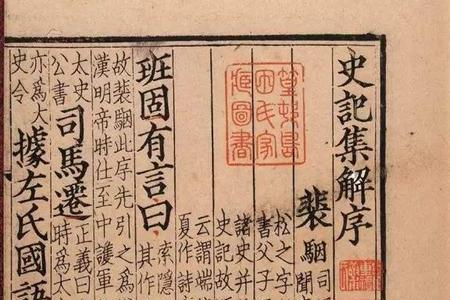 史記集解序
篁村島
田氏家
藏圖書
裴駰
司
聞
松之字
書父子
諸史并
史記故
云謂端
夏作詩
班固有言曰
索隱
其作
故裴駰此序先引之為
漢明帝時仕至中護軍
太史
公書
司馬遷
正義曰
時為太
亦為太
史令
據左氏國語